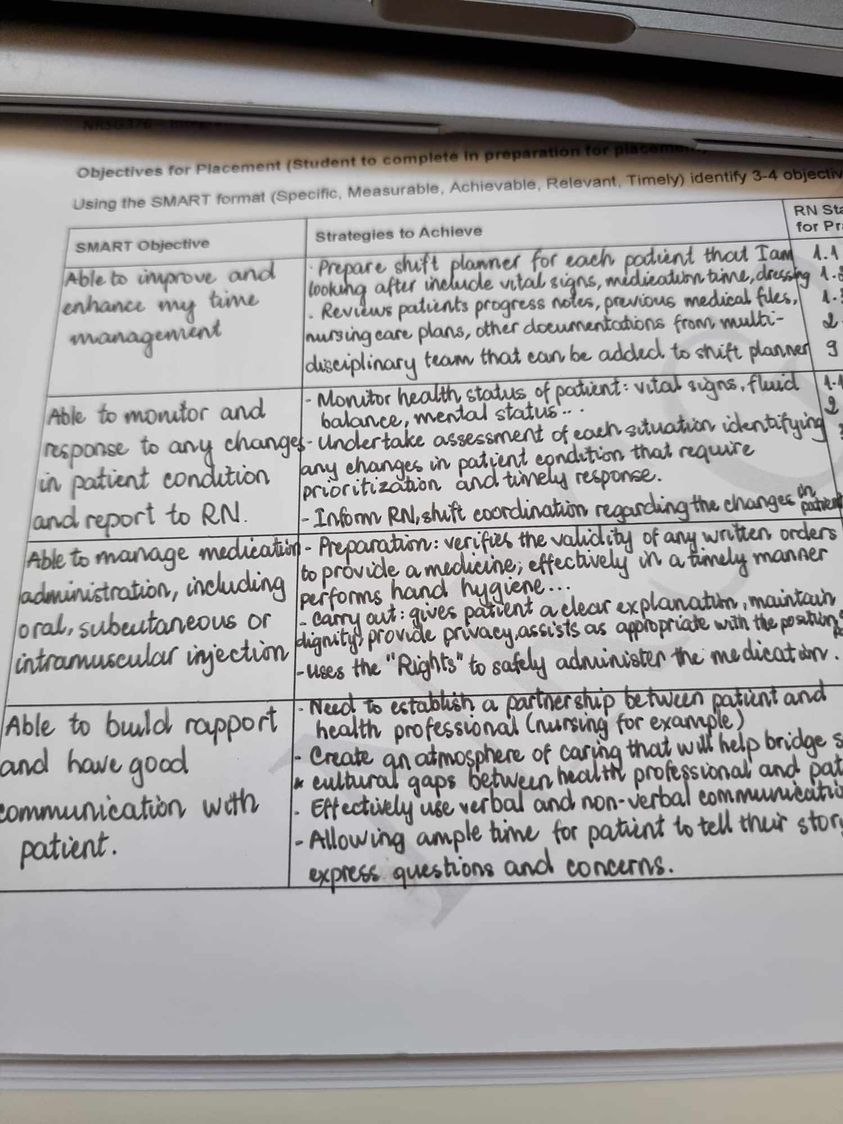 NRSG376
Objectives for Placement (Student to complete in preparation for
Using the SMART format (Specific, Measurable, Achievable, Relevant, Timely) identify 3-4
SMART Objective
Strategies to Achieve
RN
for
Able to improve and
enhance my time
management
· Prepare shift planner for each patient that I am
looking after include vital signs, medication time, dressing
. Reviews patients progress notes, previous medical files,
nursing care plans, other documentations from multi-
disciplinary team that can be added to shift planner
1.1
9
Able to monitor and
response to any changes
in patient condition
and report to RN.
- Monitor health status of patient: vital signs, fluid
balance, mental status...
- Undertake assessment of each situation identifying
any changes in patient condition that require
prioritization and timely response.
- Inform RN, shift coordination regarding the changes in patient
Able to manage medication
administration, including
oral, subcutaneous or
intramuscular injection
- Preparation: verifies the validity of any written orders
to provide a medicine; effectively in a timely manner
performs hand hygiene...
- Carry out: gives patient a clear explanation, maintain
dignity, provide privacy, assists as appropriate with the
- Uses the "Rights" to safely administer the medication.
Able to build rapport
and have good
communication with
patient.
- Need to establish a partnership between patient and
health professional (nursing for example)
- Create an atmosphere of caring that will help bridge
cultural gaps between health professional and
. Effectively use verbal and non-verbal
- Allowing ample time for patient to tell their
express questions and concerns.